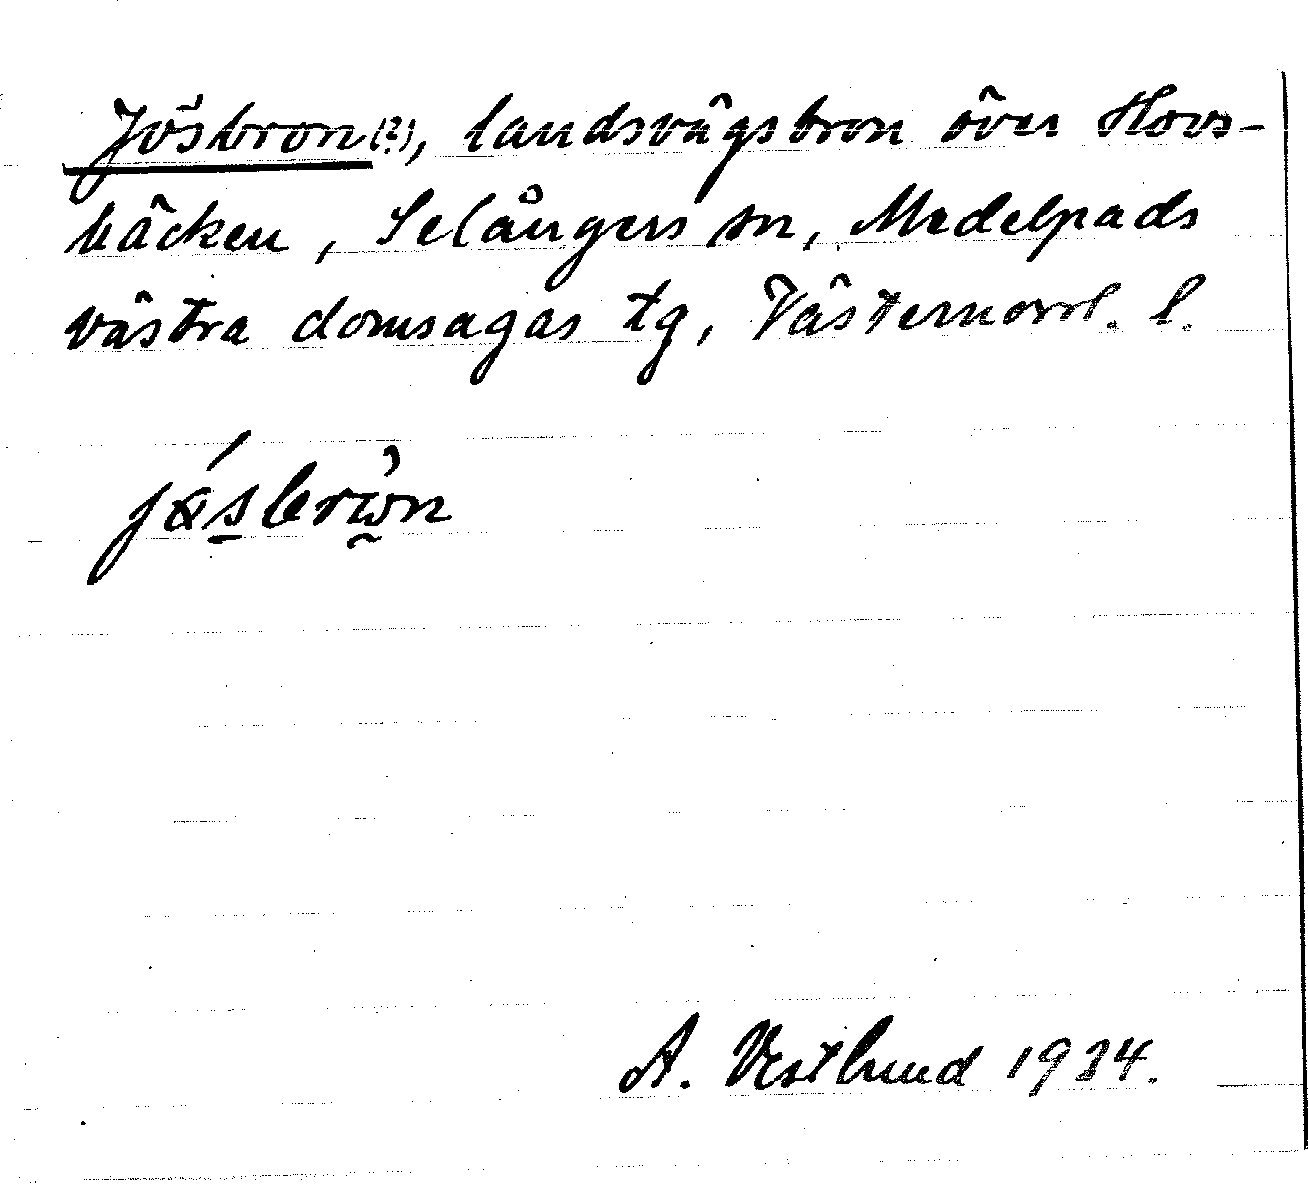 Jösbron (?), landsvägsbron över Hovs-
bäcken, Selångers sn, Medelpads
västra domsagas tg, Västernorrl. l.
A. Vestlund 1934.